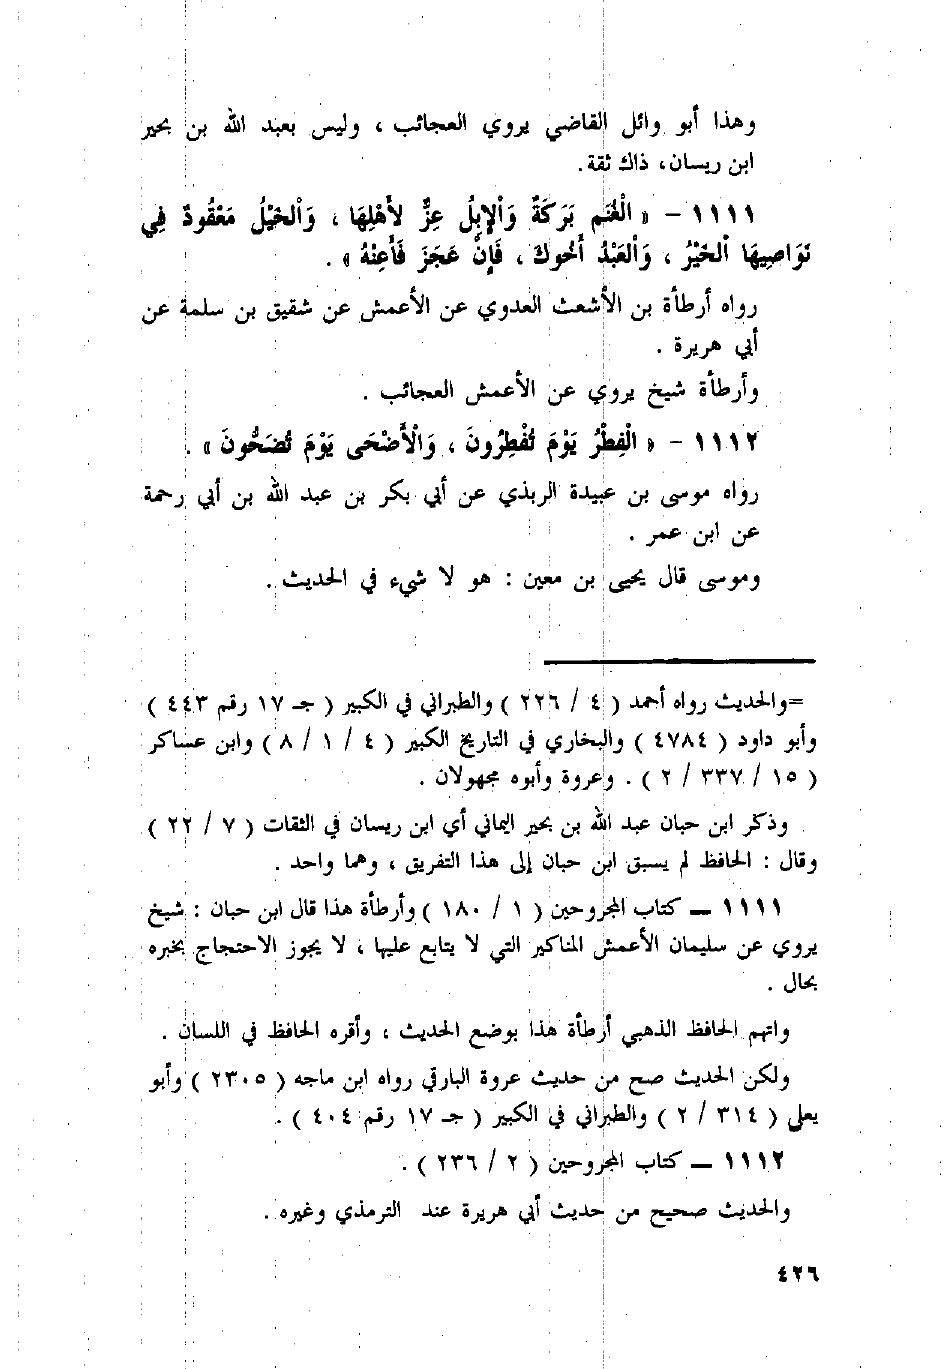 وهذا أبو وائل القاضي يروي العجائب ، وليس بعبد الله بن بحير
ابن ريسان، ذاك ثقة.
١١١١ – « الْغَنَم بَرَكَةٌ وَالإِبِلُ عِزٌّ لأَهْلِهَا ، وَالخَيْلُ مَعْقُودٌ فِي
نَوَاصِيهَا الخَيْرُ ، وَالعَبْدُ أَخُوكَ ، فَإِنْ عَجَزَ فَأَعِنْهُ » .
رواه أرطأة بن الأشعث العدوي عن الأعمش عن شقيق بن سلمة عن
أبي هريرة .
وأرطأة شيخ يروي عن الأعمش العجائب .
١١١٢ – « الْفِطْرُ يَوْمَ تُفْطِرُونَ ، وَالْأَضْحَى يَوْمَ تُضَحُّونَ » .
رواه موسى بن عبيدة الربذي عن أبي بكر بن عبد الله بن أبي رحمة
عن ابن عمر .
وموسى قال يحيى بن معين : هو لا شيء في الحديث .
=والحديث رواه أحمد ( ٤ / ٢٢٦ ) والطبراني في الكبير ( جـ ١٧ رقم ٤٤٣ )
وأبو داود ( ٤٧٨٤ ) والبخاري في التاريخ الكبير ( ٤ / ١ / ٨ ) وابن عساكر
( ١٥ / ٣٣٧ / ٢ ) . وعروة وأبوه مجهولان .
وذكر ابن حبان عبد الله بن بحير اليماني أي ابن ريسان في الثقات ( ٧ / ٢٢ )
وقال : الحافظ لم يسبق ابن حبان إلى هذا التفريق ، وهما واحد .
١١١١ — كتاب المجروحين ( ١ / ١٨٠ ) وأرطأة هذا قال ابن حبان : شيخ
يروي عن سليمان الأعمش المناكير التي لا يتابع عليها ، لا يجوز الاحتجاج بخبره
بحال .
واتهم الحافظ الذهبي أرطأة هذا بوضع الحديث ، وأقره الحافظ في اللسان .
ولكن الحديث صح من حديث عروة البارقي رواه ابن ماجه ( ٢٣٠٥ ) وأبو
يعلى ( ٣١٤ / ٢ ) والطبراني في الكبير ( جـ ١٧ رقم ٤٠٤ ) .
١١١٢ — كتاب المجروحين ( ٢ / ٢٣٦ ) .
والحديث صحيح من حديث أبي هريرة عند الترمذي وغيره .
٤٢٦